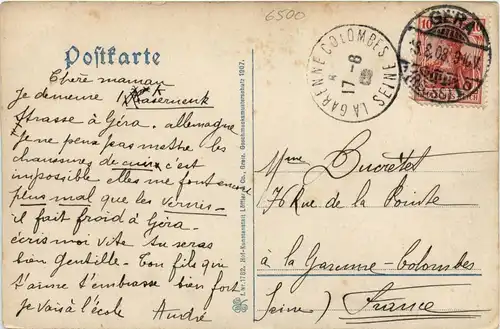 6500
Postkarte
Chère maman
Je demeure 1 Kaserneuk
Strasse à Géra. allemagne
Je ne peux pas mettre les
chaussures de cuir c'est
impossible elles me font encore
plus mal que les vernis.
il fait froid à Géra.
écris moi vite tu seras
bien Gentille. Ton fils qui
t'aime t'embrasse bien fort
Je vais à l'école André
Löffler & Co., Greiz. Geschmacksmusterschutz 1907.
LA GARENNE COLOMBES SEINE
17 -8
GERA
(REUSS)
10
Mme Bucrètet
76 Rue de la Pointe
à la Garenne-Colombes
Seine) France